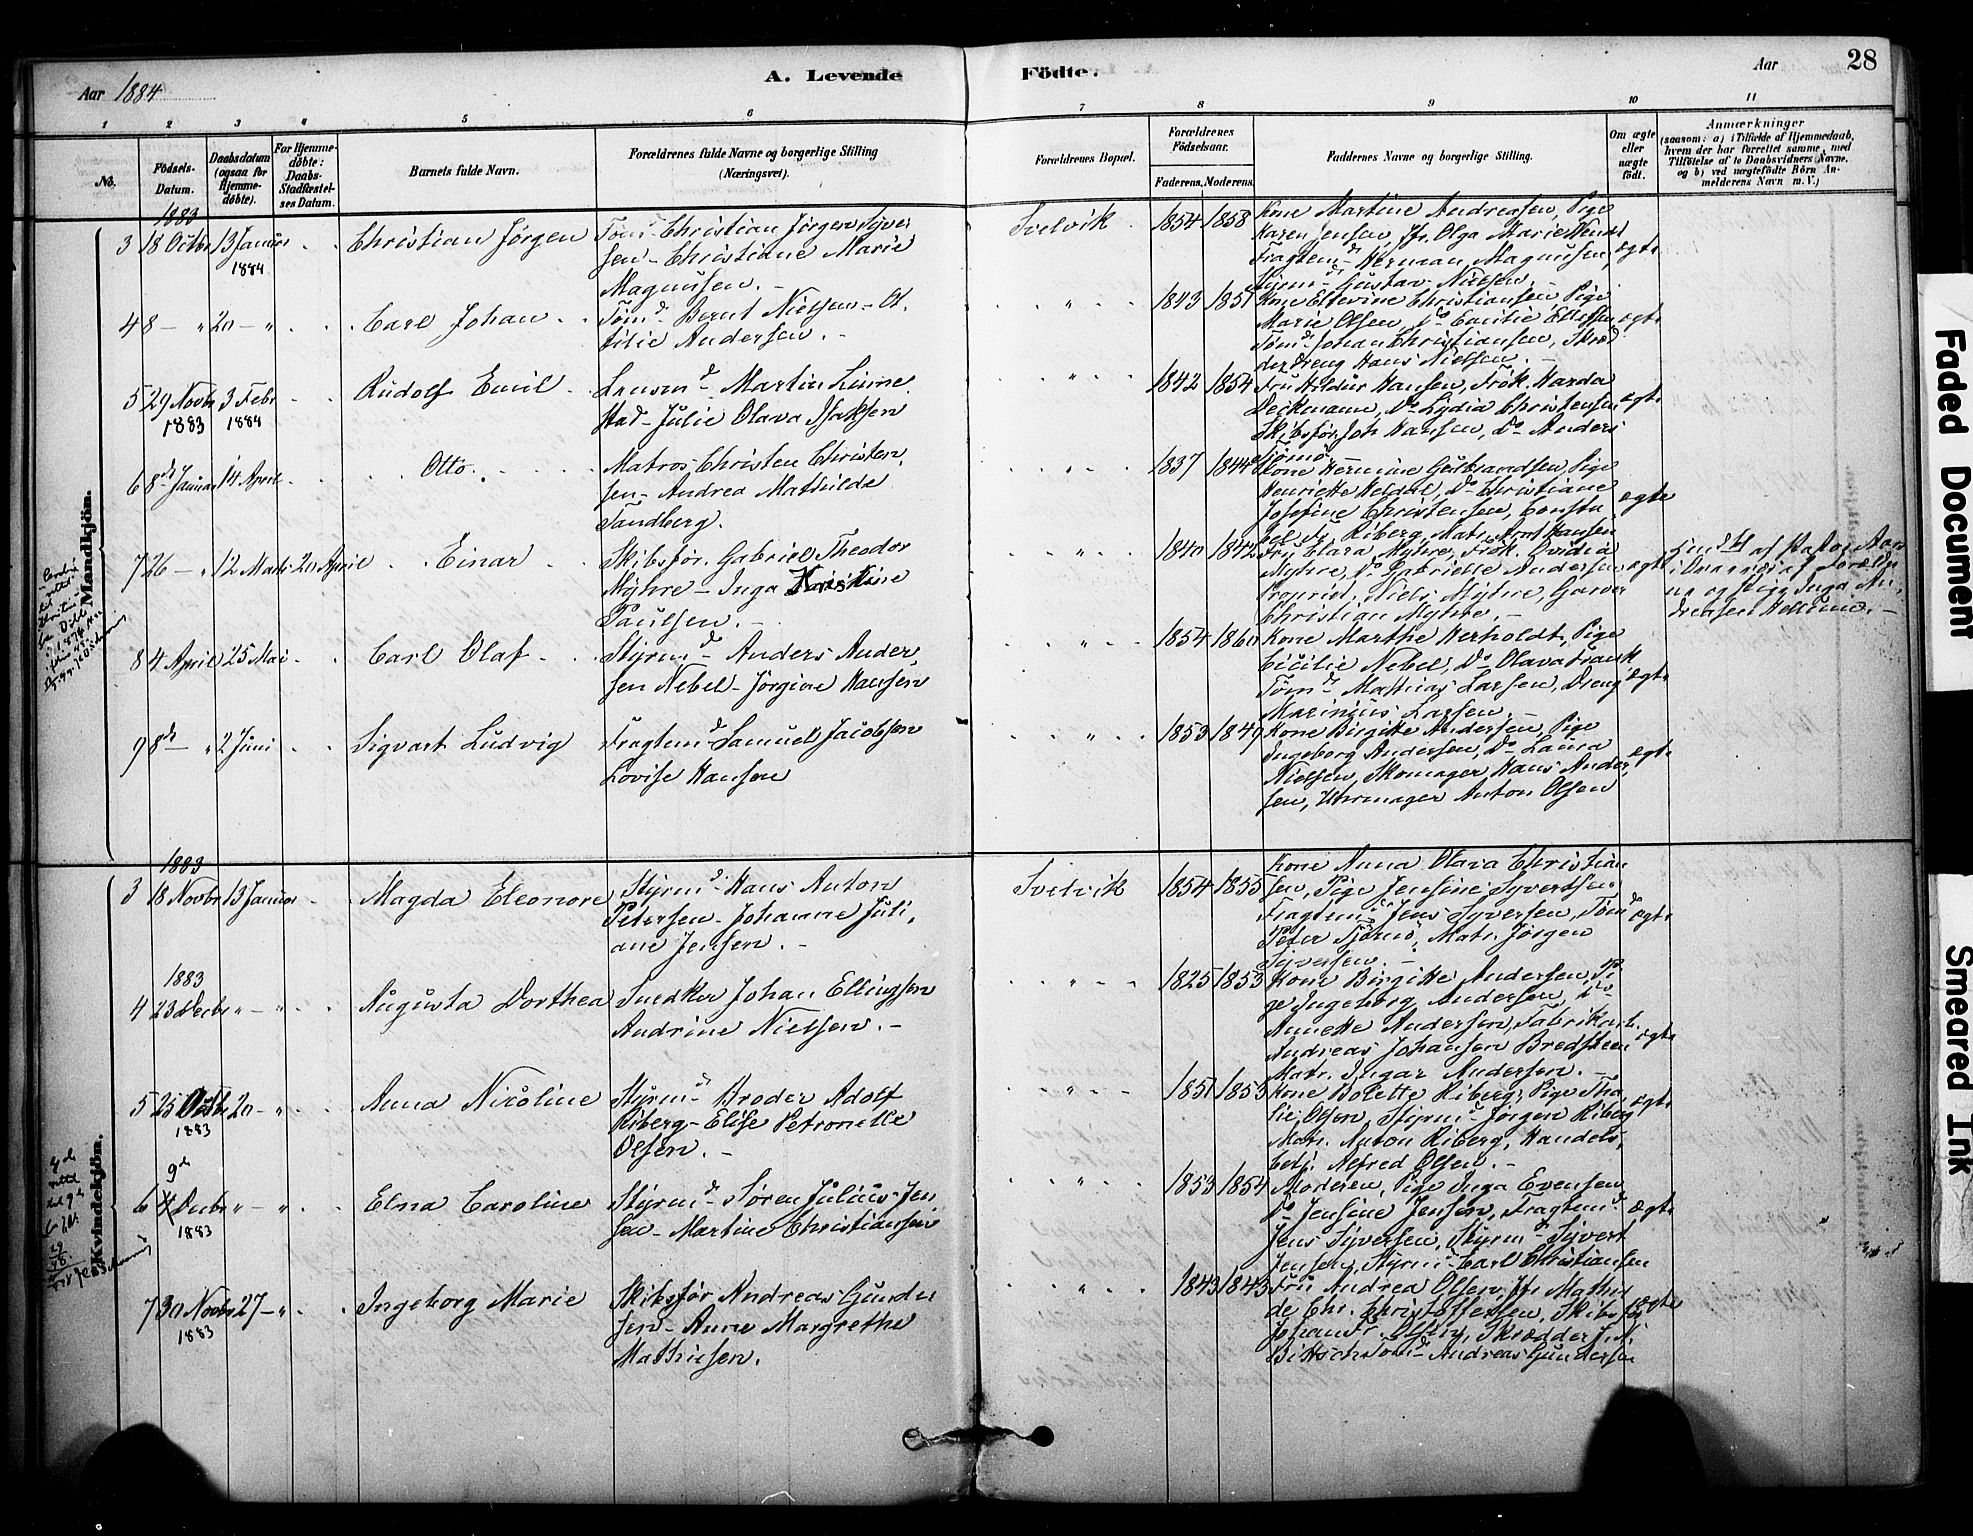 28
A. Levende Födte.
Aar 1884
Aar
1 2 3 4 5 6 7 8 9 10 11
No.
Födsels-Datum.
Daabsdatum (ogsaa for Hjemme-döbte).
For Hjemme-döbte: Daabs-Stadfæstel-ses Datum.
Barnets fulde Navn.
Forældrenes fulde Navne og borgerlige Stilling (Næringsvei).
Forældrenes Bopæl.
Forældrenes Födselsaar.
Faderens. Moderens.
Faddernes Navne og borgerlige Stilling.
Om ægte eller uægte födt.
Anmærkninger
(saasom: a) i Tilfælde af Hjemmedaab, hvem der har forrettet samme, med Tilföielse af to Daabsvidners Navne. og b) ved uægtefödte Börn Anmelderens Navn m. V.)
Mandkjön.
1883
3 18 Octbr 13 Januar 1884 Christian Jørgen
Tømd Christian Jørgen Syver
sen - Christiane Marie
Magnusen. -
Svelvik 1854 1858
Kone Martine Andreasen, Pige
Karen Jensen, Jfr. Olga Marie
Fragtemd Herman Magnusen,
Styrmd Gustav Nielsen. -
ægte
4 8 - " 20 - " Carl Johan
Tømd Bernt Nielsen - Ot,
tilie Andersen. -
" 1843 1851
Kone Ellevine Christiansen, Pige
Marie Olsen, Do Emilie Ellefsen
Tømd Johan Christiansen, Skræd
derdreng Hans Nielsen. -
ægte
5 29 Novbr 1883 3 Febr 1884 Rudolf Emil
Martin Linne
stad - Julie Olava Isaksen
" 1842 1854
Fru Hildur Hansen, Frøk. Harda
Deckmann, Do Lydia Christensen
Skibsfør. Joh Hansen, Do Anders
Tjömö
ægte
6 8de Januar 14 April Otto.
Matros Christen Christen,
sen - Andrea Mathilde
Tandberg.
" 1837 1844
Kone Hermine Gulbrandsen, Pige
Henriette Heldal, Do Christiane
Josefine Christensen, Constu
bel Fr. Riberg, Matr. Hansen
ægte
7 26 - " 12 Marts 20 April Einar
Skibsfør. Gabriel Theodor
Myhre - Inga Kristine
Paulsen. -
" 1840 1842
Fru Clara Myhre, Frøk. Ovidia
Myhre, Do Gabrielle Andersen
Propriet. Niels Myhre, Garver
Christian Myhre. -
ægte
af Pastor
af Foræld
ne og Pige Inga An
dreasen Hellum. -
8 4 April 25 Mai Carl Olaf
Styrmd Anders Ander,
sen Nebel - Jørgine Hansen
" 1854 1860
Kone Marthe Herholdt, Pige
Cicilie Nebel, Do Olava Frank
Tømd Mathias Larsen, Dreng
Marinius Larsen. -
ægte
9 8de - " 2 Juni Sigvart Ludvig
Fragtemd Samuel Jacobsen
Lovise Hansen
" 1853 1849
Kone Birgitte Andersen, Pige
Ingeborg Andersen, Do Laura
Nielsen, Skomager Hans Ander,
sen, Uhrmager Anton Olsen
ægte
Kvindekjön.
1883
3 18 Novbr 13 Januar Magda Eleonore
Styrmd Hans Anton
Petersen - Johanne Juli,
ane Jensen. -
Svelvik 1854 1855
Kone Anna Olava Christian
sen, Pige Jensine Syvertsen
Fragtemd Jens Syversen, Tømd
Peter Tjömö, Matr. Jørgen
Syversen. -
ægte
1883
4 23 Decbr " - " Augusta Dorthea
Snedker Johan Ellingsen
Andrine Nielsen. -
" 1825 1853
Kone Birgitte Andersen, Pi
ge Ingeborg Andersen, Do
Annette Andersen, Fabrikarb.
Andreas Johansen Bredsteen
Matr. Ingar Andersen. -
ægte
5 25 Octbr 1883 20 - " Anna Nicoline
Styrmd Broder Adolf
Riberg - Elise Petronelle
Olsen. -
" 1851 1853
Kone Bolette Riberg, Pige Tha
lie Olsen, Styrmd Jørgen Riberg
Matr. Anton Riberg, Handels,
betj. Alfred Olsen. -
ægte
9de
6 4 Decbr 1883 " - " Elna Caroline
Styrmd Søren Julius Jen
sen - Martine Christiansen
" 1853 1854
Moderen, Pige Inga Evensen
Do Jensine Jensen, Fragtemd
Jens Syversen, Styrmd Syvert
Jensen, Styrmd Carl Christiansen
ægte
7 30 Novbr 1883 27 - " Ingeborg Marie
Skibsfør Andreas Gunder
sen - Anne Margrethe
Mathiesen.
" 1843 1843
Fru Andrea Olsen, Jfr Mathil
de Chr. Christoffersen, Skibsfør
Johan Fr. Olsen, Skrædder J. N.
Tømd Andreas Gundersen
ægte
Faded Document
Smeared Ink